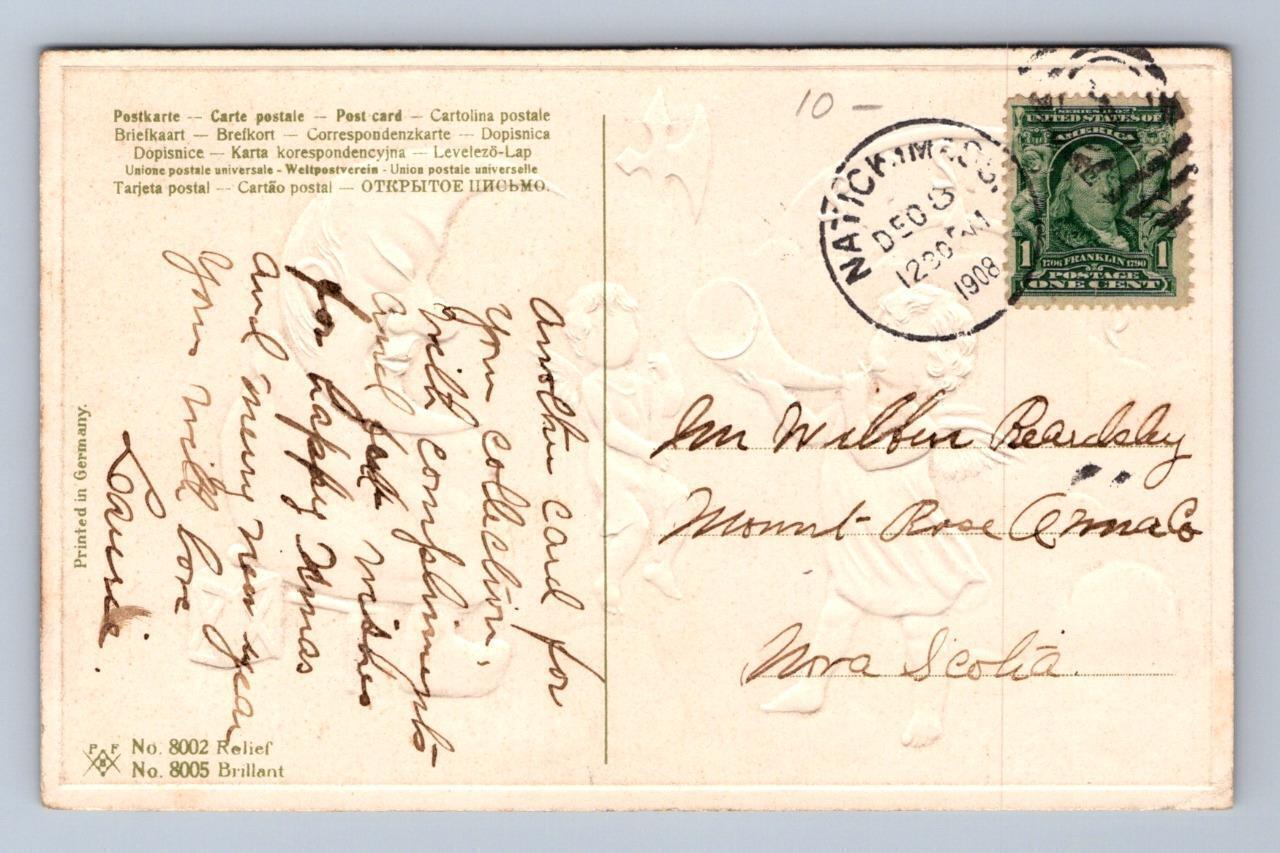 Postkarte — Carte postale — Post card — Cartolina postale
Briefkaart — Brefkort — Correspondenzkarte — Dopisnica
Dopisnice — Karta korespondencyjna — Levelező-Lap
Unione postale universale - Weltpostverein - Union postale universelle
Tarjeta postal — Cartão postal — ОТКРЫТОЕ ПИСЬМО.
another card for
your collection,
with compliments
and best wishes
for happy Xmas
and merry new year
yours with love
Laurie.
Printed in Germany.
P F B
No. 8002 Relief
No. 8005 Brillant
10 —
NATICK, MASS.
DEC 8
1230 PM
1908
SERIES OF 1902
UNITED STATES OF
AMERICA
1 1
1706 FRANKLIN 1790
POSTAGE
ONE CENT
Mr Wilbur Beardsley
Mount Rose Anna Co
Nova Scotia.